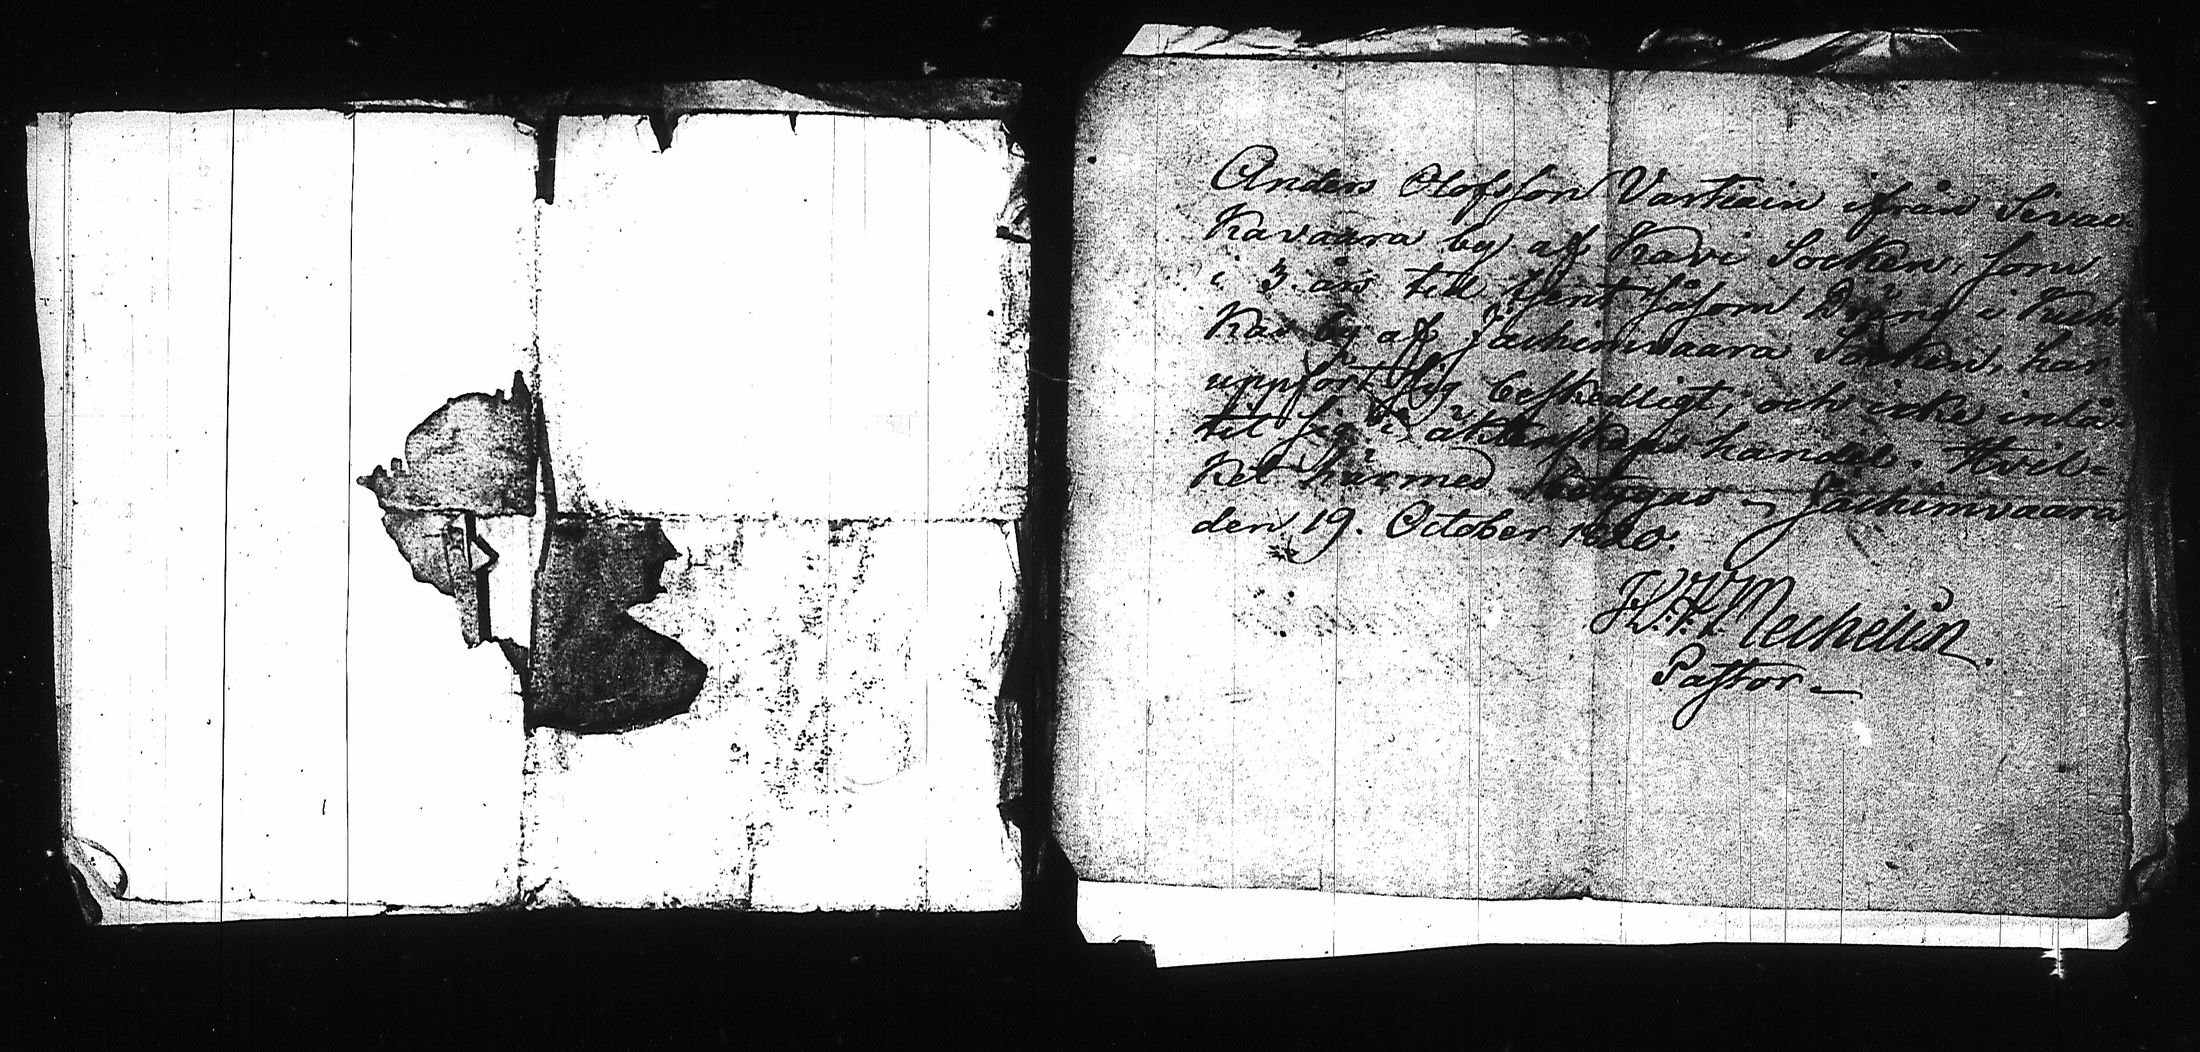 Anders Olofsson Vartiain ifrån Sivac
Kavaara by af Kavi Socken, som
i 3. års tid tjent såsom Dräng i Kuck
Kas by af Jächimvaara Socken, har
uppfört sig beskedligt, och icke inlå-
tit sig i äktenskaps handel. Hvil=
ket härmed betygas - Jächimvaara
den 19. October 1820.
Mechelin.
Pastor -